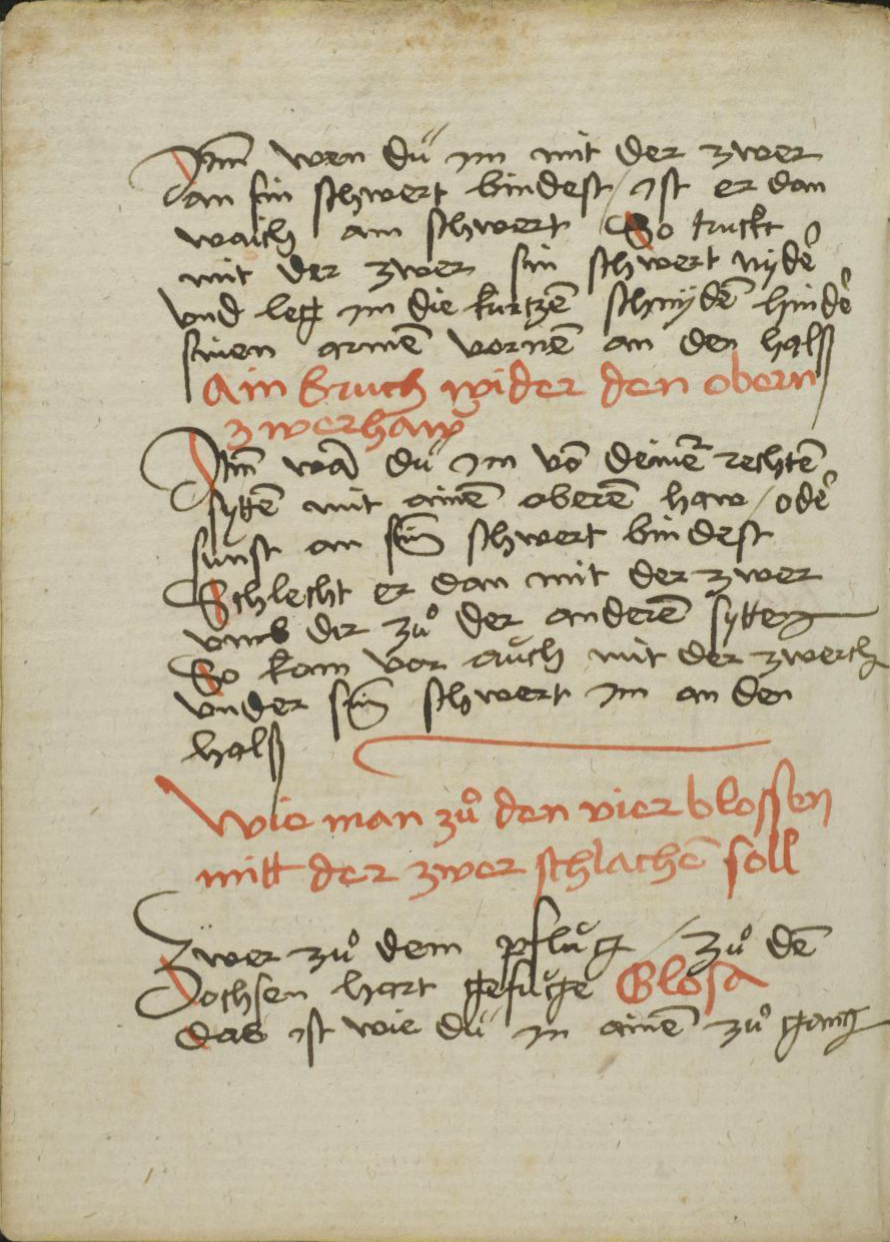 Itm̄ wen dü im mit der zwer
an sin schwert bindest / ist er dan
waich am schwert So truckt
mit der zwer sin schwert nyde᷑
vnd leg im die kurtzē schnydē hinde᷑
sinen armē vornē an den halß
Ain bruch wider den obern
zwerhaw
Itm̄ wā dü im vō deinē rechtē
sytē mit ainē oberē haw / ode᷑
sunst an sin̄ schwert bindest
Schlecht er dan mit der zwer
vmb dir zuͦ der anderē sytten
So kom vor auch mit der zwerch
vnder sin̄ schwert im an den
halß
Wie man zuͦ den vier blossen
mitt der zwer schlachē soll
Zwer zuͦ dem pfluͦg / zuͦ dē
ochsen hart gefuͦge Glosa
das ist wie dü in ainē zuͦ gang